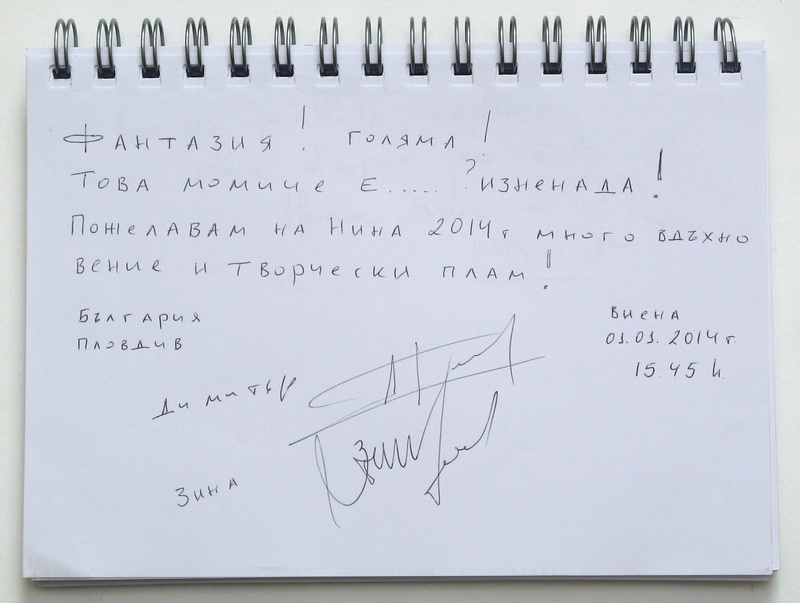 Фантазия! голяма!
Това момиче е.....? изненада!
Пожелавам на Нина 2014г много вдъхно
вение и творчески плам!
България
Пловдив
Виена
01.01.2014г.
15.45 h.
Димитър
Зина